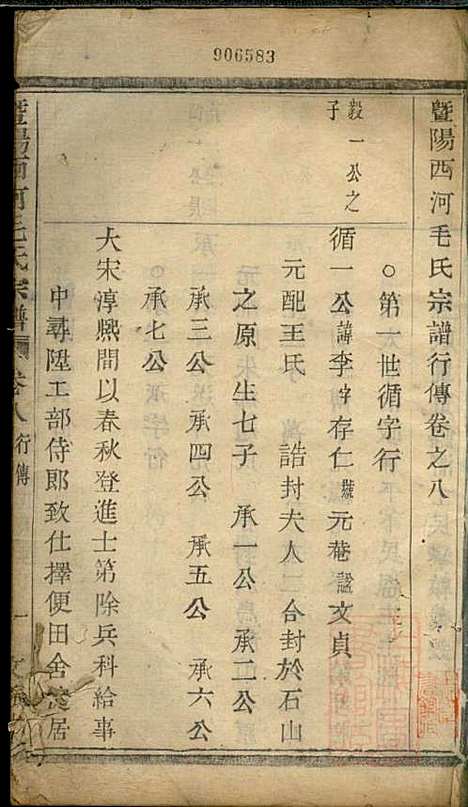 906583
暨陽西河毛氏宗譜行傳卷之八
○第六世循字行
毅一公之
子
循一公諱李字存仁號元菴諡文貞
元配王氏 誥封夫人三合封於石山
之原生七子 承一公 承二公
承三公 承四公 承五公 承六公
承七公
大宋淳熙間以春秋登進士第除兵科給事
中尋陞工部侍郎致仕擇便田舍茂居
暨陽西河毛氏宗譜 卷八 行傳 一